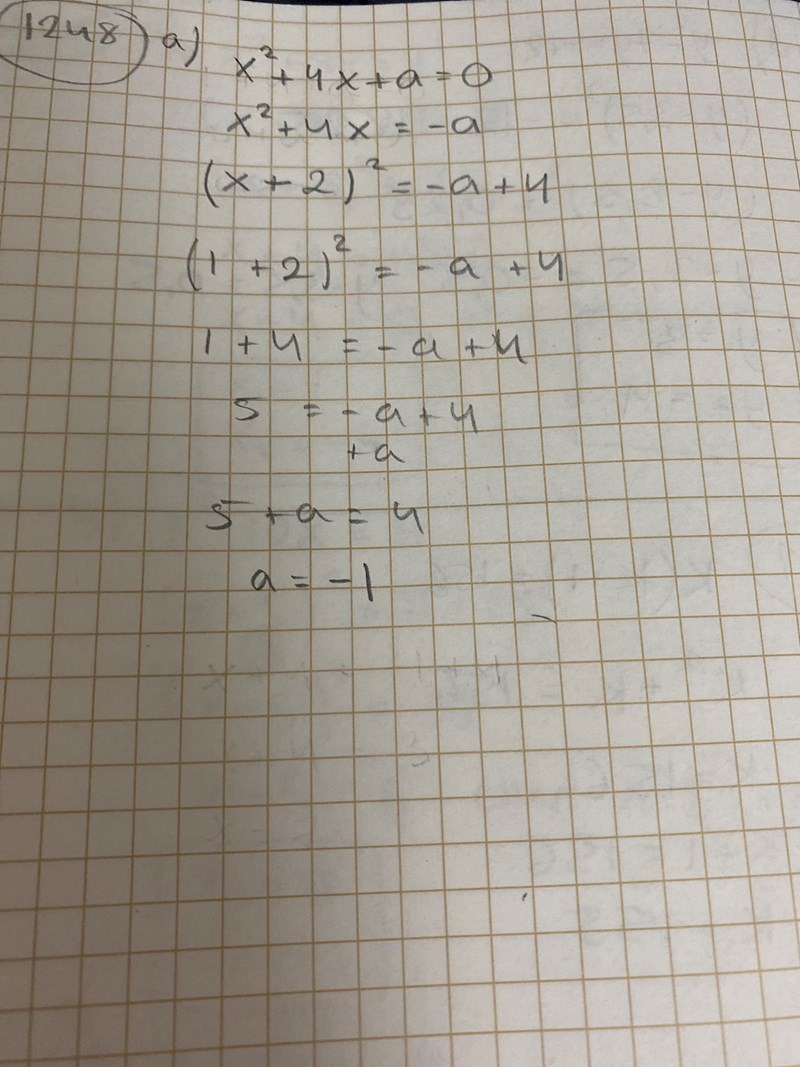 1248) a)
x²+4x+a=0
x²+4x = -a
(x+2)² = -a+4
(1+2)² = -a+4
1+4 = -a+4
5 = -a+4
+a
5+a=4
a=-1